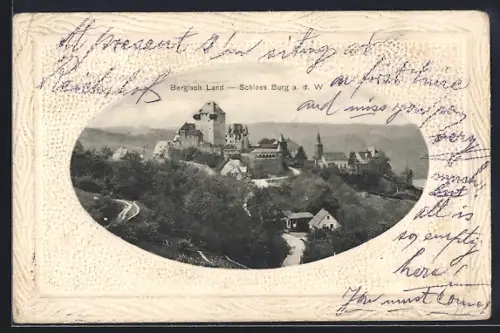 At present I'm sitting at
Bergisch Land — Schloss Burg a. d. W.
and miss you
very
much
but
all is
so empty
here!
You must come